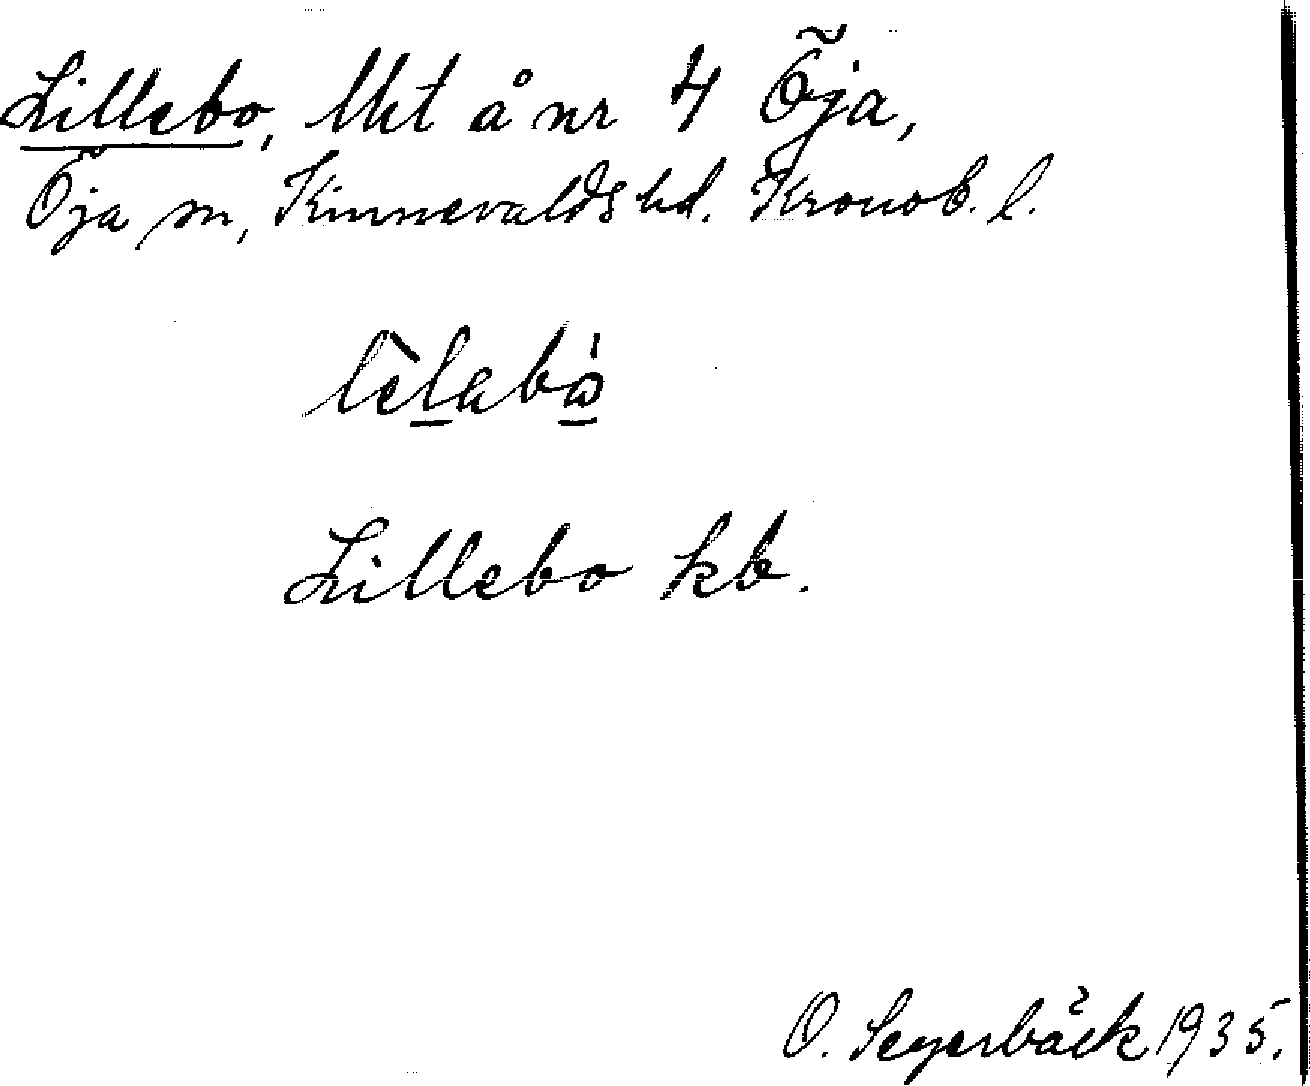 Lillebo, lht å nr 4 Öja,
Öja sn, Kinnevalds hd. Kronob. l.
Lillebo kb.
O. Segerbäck 1935.